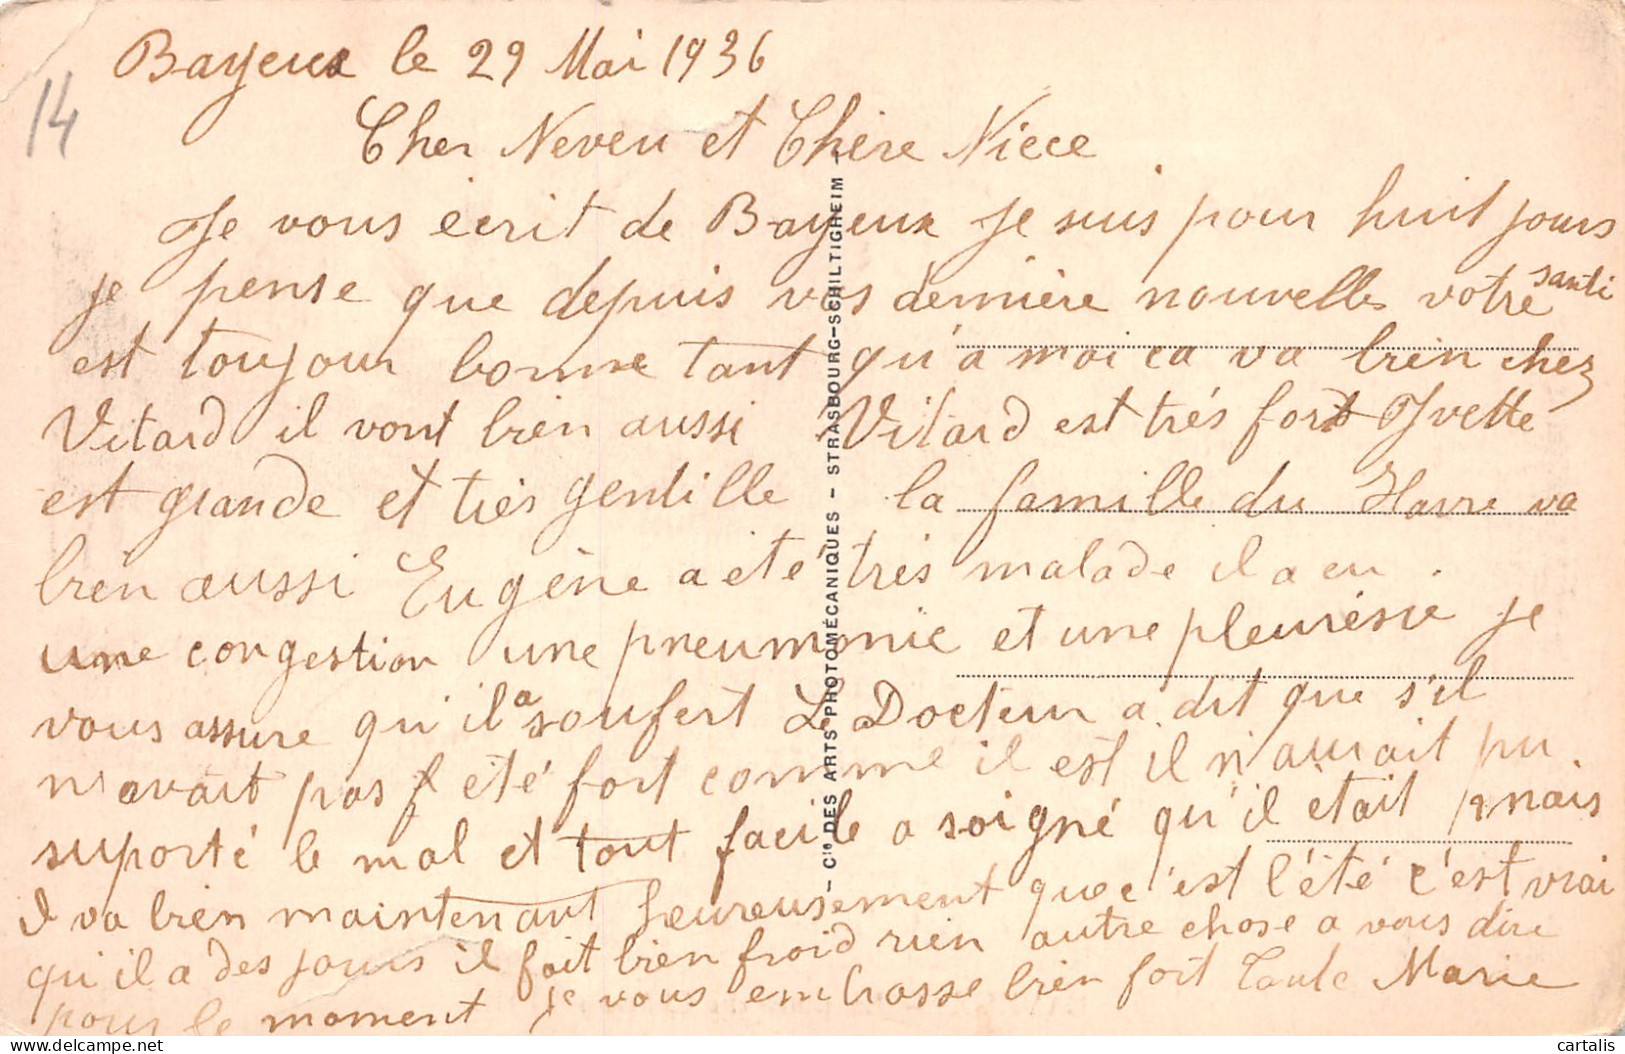 Bayeux le 29 Mai 1936
14
Cher Neveu et Chère Niece
Je vous écrit de Bayeux Je suis pour huit jours
je pense que depuis vos dernière nouvelles votre santé
est toujour bonne tant qu'à moi ca va bien chez
Vitard il vont bien aussi Vitard est très fort Yvette
est grande et très gentille la famille du Havre va
bien aussi Eugène a été très malade il a eu
une congestion une pneumonie et une pleurésie je
vous assure qu'il a soufert Le Docteur a dit que s'il
n'avait pas été fort comme il est il n'aurait pu
suporté le mal et tout facile a soigné qu'il était mais
il va bien maintenant heureusement que c'est l'été c'est vrai
qu'il a des jours il fait bien froid rien autre chose a vous dire
pour le moment je vous embrasse bien fort Tante Marie
- Cie DES ARTS PHOTOMÉCANIQUES - STRASBOURG-SCHILTIGHEIM -
cartalis
delcampe.net